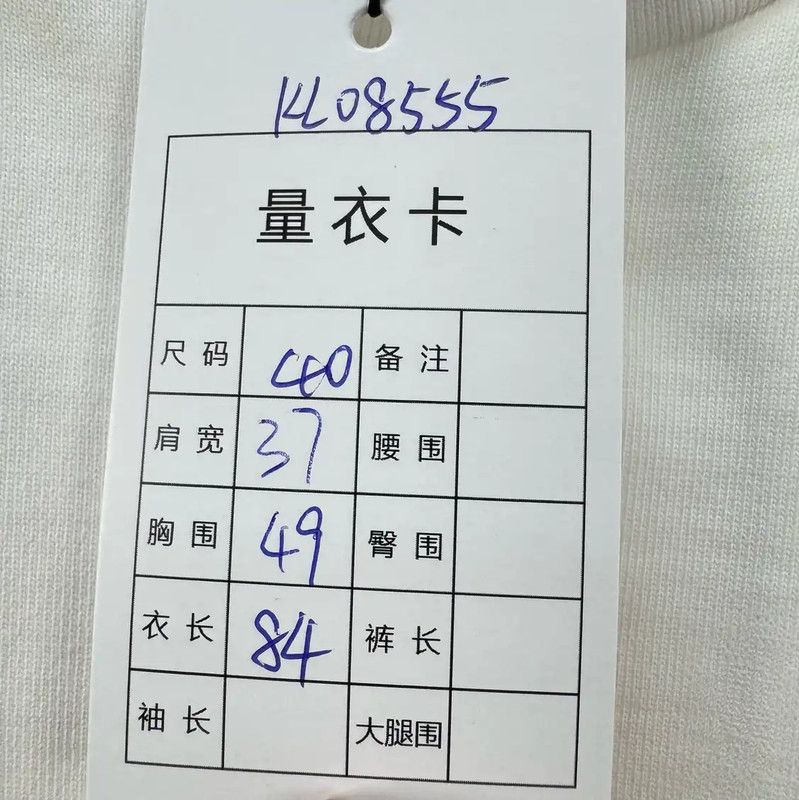 KL08555
量衣卡
尺码 40 备注
肩宽 37 腰围
胸围 49 臀围
衣长 84 裤长
袖长 大腿围